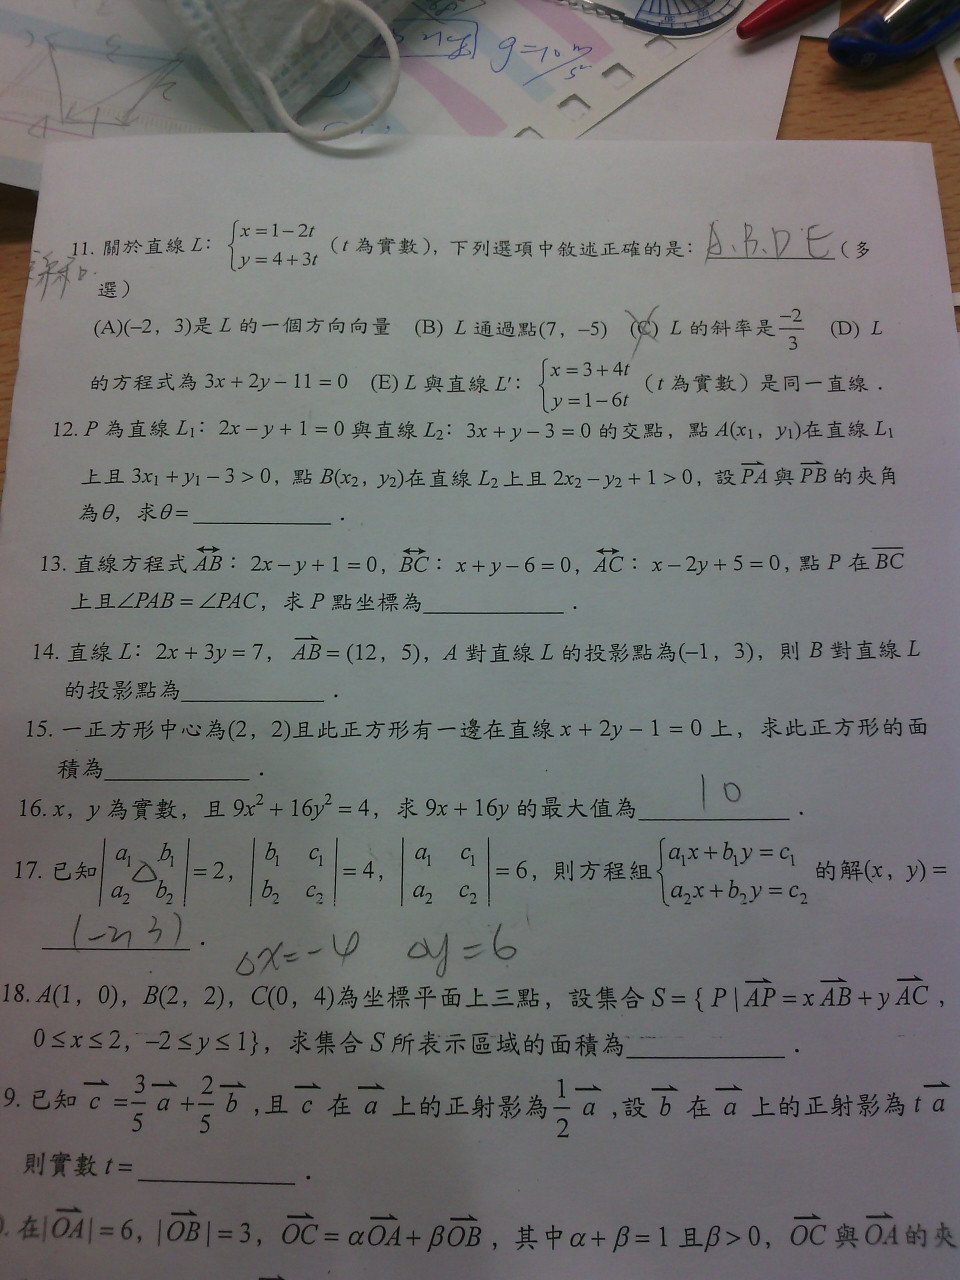 g=10 m/s²
11. 關於直線 L: { x = 1 − 2t （t 為實數）, 下列選項中敘述正確的是: A.B.D E （多
y = 4 + 3t
選）
(A)(−2, 3)是 L 的一個方向向量 (B) L 通過點(7, −5) (C) L 的斜率是 −2/3 (D) L
的方程式為 3x + 2y − 11 = 0 (E) L 與直線 L′: { x = 3 + 4t （t 為實數）是同一直線.
y = 1 − 6t
12. P 為直線 L₁: 2x − y + 1 = 0 與直線 L₂: 3x + y − 3 = 0 的交點, 點 A(x₁, y₁)在直線 L₁
上且 3x₁ + y₁ − 3 > 0, 點 B(x₂, y₂)在直線 L₂ 上且 2x₂ − y₂ + 1 > 0, 設 PA 與 PB 的夾角
為θ, 求θ = ____________ .
13. 直線方程式 AB: 2x − y + 1 = 0, BC: x + y − 6 = 0, AC: x − 2y + 5 = 0, 點 P 在 BC
上且∠PAB = ∠PAC, 求 P 點坐標為____________ .
14. 直線 L: 2x + 3y = 7, AB = (12, 5), A 對直線 L 的投影點為(−1, 3), 則 B 對直線 L
的投影點為____________ .
15. 一正方形中心為(2, 2)且此正方形有一邊在直線 x + 2y − 1 = 0 上, 求此正方形的面
積為____________ .
16. x, y 為實數, 且 9x² + 16y² = 4, 求 9x + 16y 的最大值為 10 .
17. 已知 |a₁ b₁| = 2, |b₁ c₁| = 4, |a₁ c₁| = 6, 則方程組 { a₁x + b₁y = c₁ 的解(x, y) =
△
|a₂ b₂| |b₂ c₂| |a₂ c₂| a₂x + b₂y = c₂
(−2, 3) .
△x = −4 △y = 6
18. A(1, 0), B(2, 2), C(0, 4)為坐標平面上三點, 設集合 S = { P | AP = x AB + y AC ,
0 ≤ x ≤ 2, −2 ≤ y ≤ 1}, 求集合 S 所表示區域的面積為____________ .
9. 已知 c = 3/5 a + 2/5 b ,且 c 在 a 上的正射影為 1/2 a ,設 b 在 a 上的正射影為 t a
則實數 t = ____________ .
. 在|OA| = 6, |OB| = 3, OC = αOA + βOB , 其中 α + β = 1 且β > 0, OC 與 OA 的夾